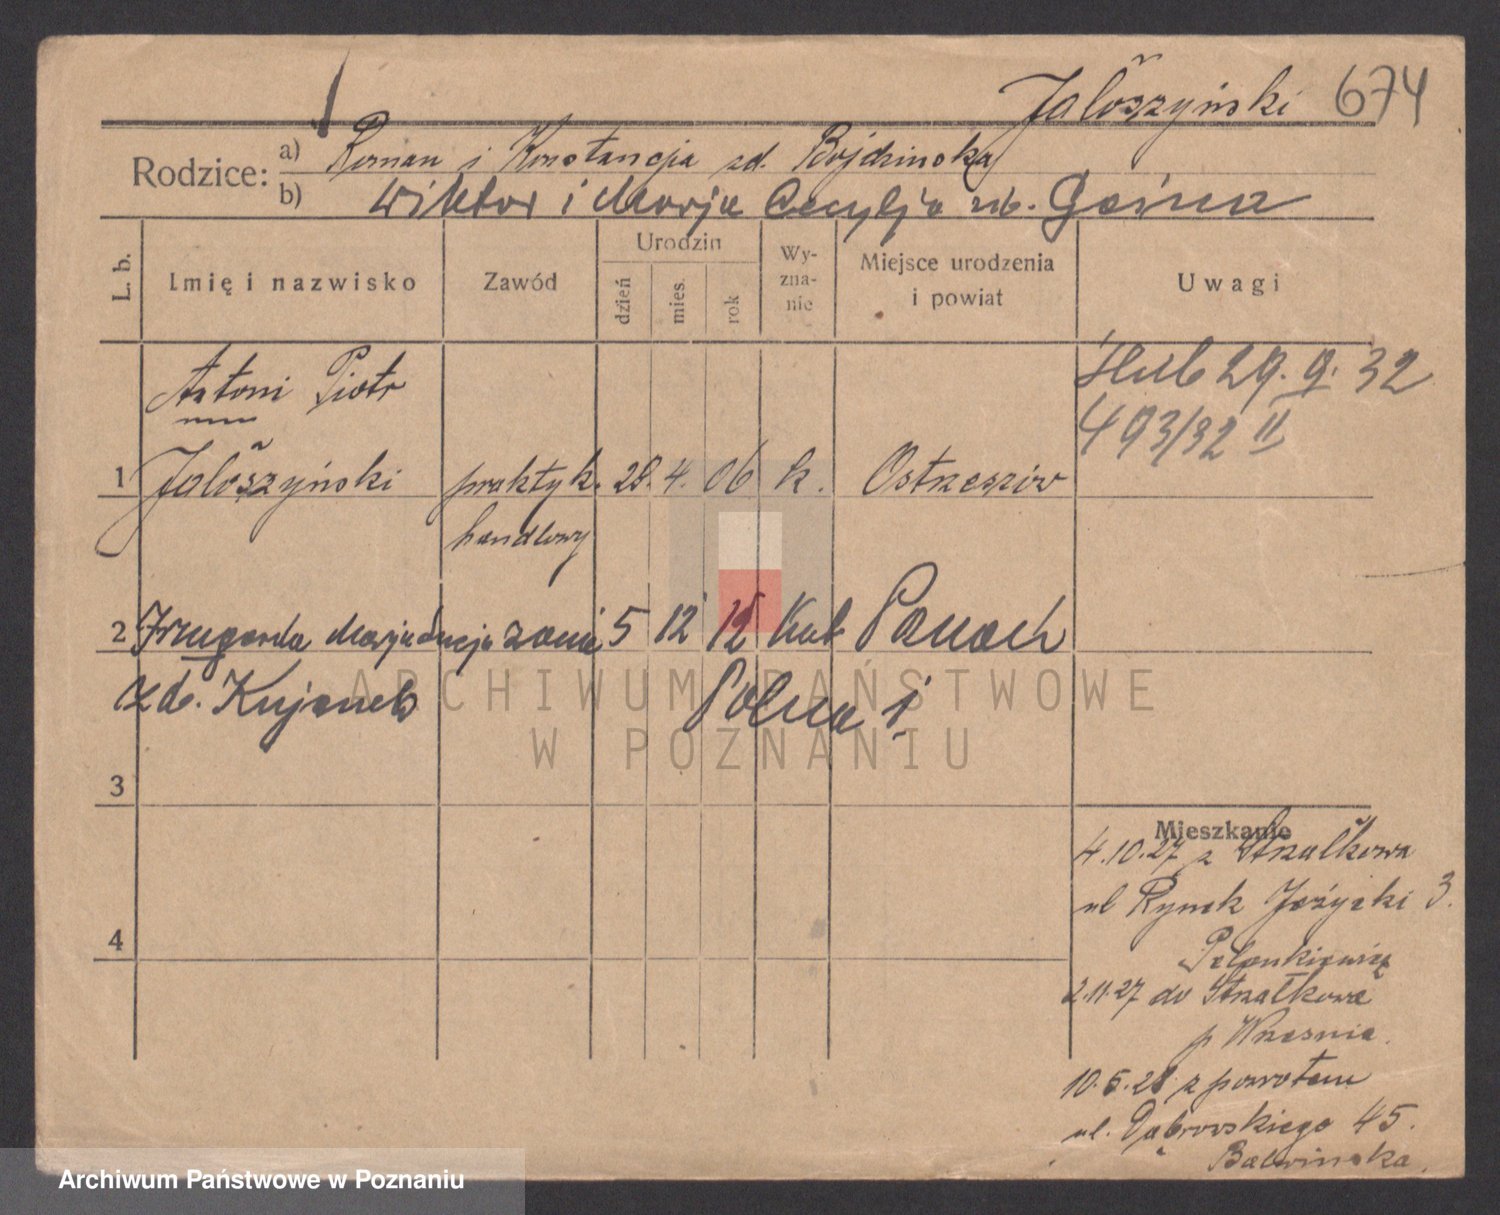 Jałoszyński 674
Rodzice: a) Roman i Konstancja zd. Bojdzinska
b) Wiktor i Marja Cecylja zd.
L. b. Imię i nazwisko Zawód Urodzin dzień mies. rok Wy-zna-nie Miejsce urodzenia i powiat Uwagi
Antoni Piotr
Ślub 29. 9. 32
493/32 II
1 Jałoszyński praktyk. 28. 4. 06 k. Ostrzeszów
handlowy
2 Marja Łucja 5 12 12
zd. Kujanek Polna 1
3
Mieszkanie
4.10.27 z Strzałkowa
ul Rynek Jeżycki 3.
4
2.11.27 do Strzałkowa
p Wrzesnia.
10.5.28 z powrotem
ul. Dąbrowskiego 45.
ARCHIWUM PAŃSTWOWE
W POZNANIU
Archiwum Państwowe w Poznaniu